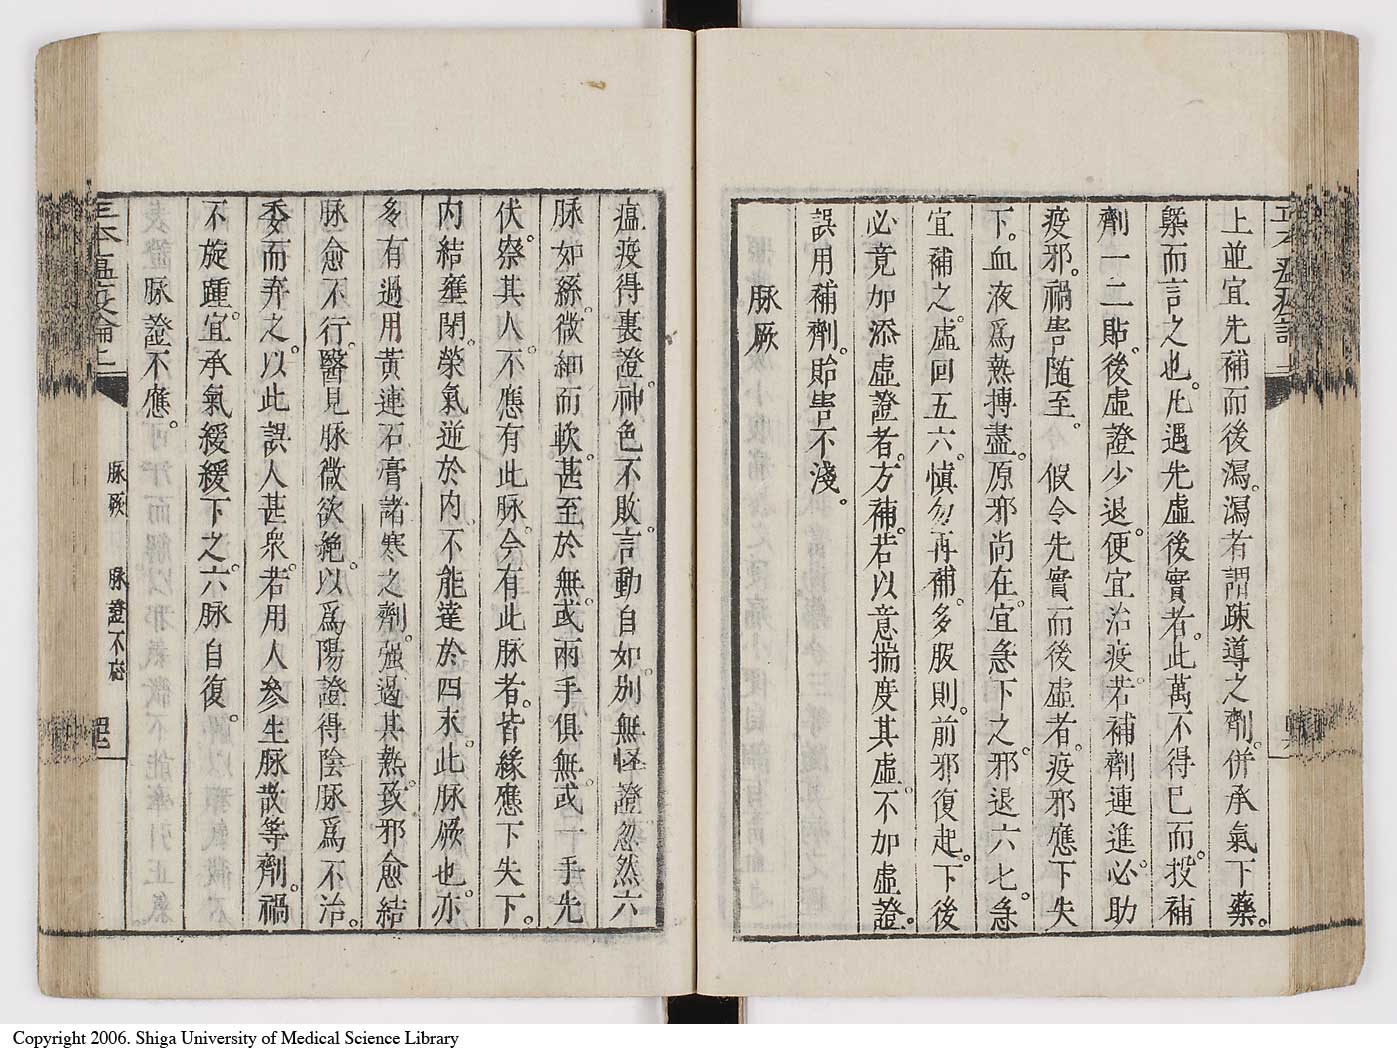 上並宜先補而後瀉。瀉者謂疎導之劑。併承氣下藥。
槩而言之也。凡遇先虛後實者。此萬不得已而投補
劑一二貼。後虛證少退。便宜治疫。若補劑連進。必助
疫邪。禍害随至。假令先實而後虛者。疫邪應下失
下。血液爲熱搏盡。原邪尚在。宜急下之。邪退六七。急
宜補之。虛回五六。慎勿再補。多服則。前邪復起。下後
必竟加添虛證者。方補。若以意揣度其虛。不加虛證。
誤用補劑。貽害不淺。
脉厥
瘟疫得裏證。神色不敗。言動自如。別無怪證忽然六
脉如絲。微細而軟。甚至於無。或兩手俱無。或一手先
伏。察其人。不應有此脉。今有此脉者。皆緣應下失下。
内結壅閉。榮氣逆於内。不能達於四末。此脉厥也。亦
多有過用黄連石膏諸寒之劑。强遏其熱。致邪愈結
脉愈不行。醫見脉微欲絶。以爲陽證得陰脉爲不治。
委而弃之。以此誤人甚衆。若用人參生脉散等劑。禍
不旋踵。宜承氣緩緩下之。六脉自復。
脉證不應。
脉厥 脉證不应
Copyright 2006. Shiga University of Medical Science Library